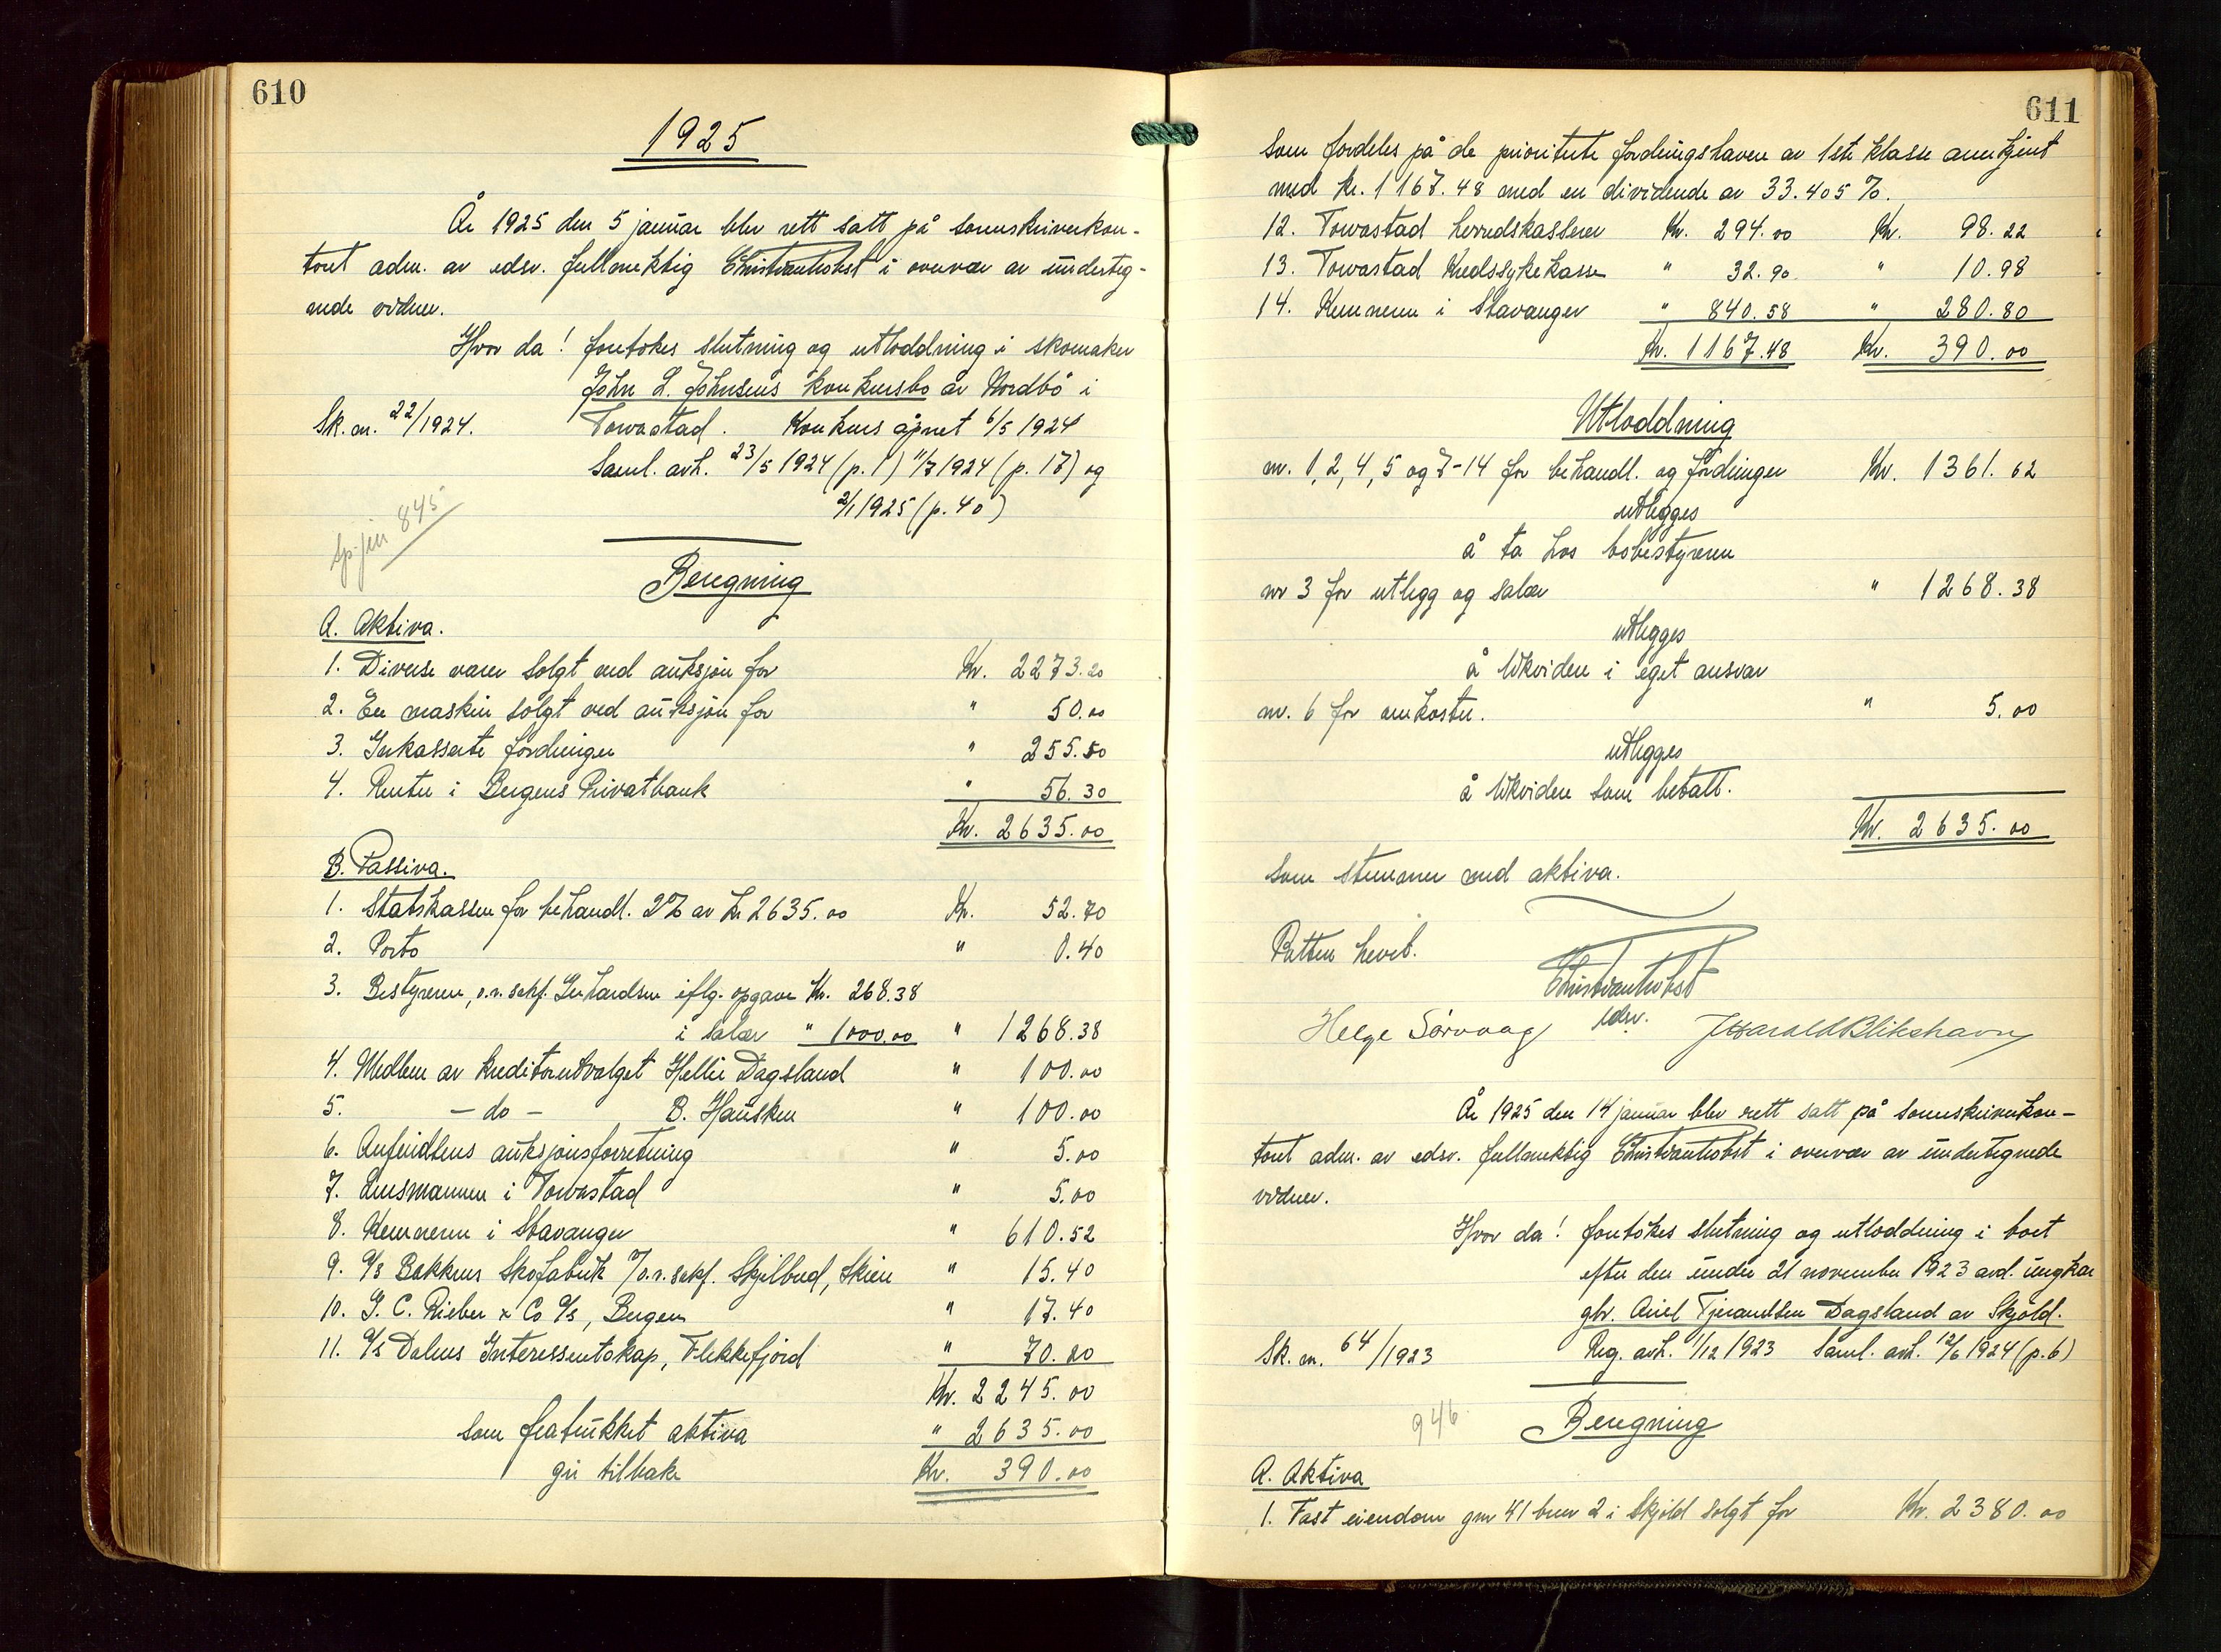 610
1925
År 1925 den 5 januar blev rett satt på sorenskriverkon-
toret adm. av edsv. fullmektig Christian Høst i overvær av underteg-
nede vidner.
Hvor da! foretokes slutning og utloddning i skomaker
John L. Johnsens konkursbo av Nordbø i
Sk. nr. 22/1924. Torvastad. Konkurs åpnet 6/5 1924
Saml. avh. 23/5 1924 (p. 1) 11/7 1924 (p. 17) og
2/1 1925 (p. 40)
845
Beregning
A. Aktiva.
1. Diverse varer solgt ved auksjon for Kr. 2273.20
2. En maskin solgt ved auksjon for " 50.00
3. Inkasserte fordringer " 255.50
4. Renter i Bergens Privatbank " 56.30
Kr. 2635.00
B. Passiva.
1. Statskassen for behandl. 2% av kr 2635.00 Kr. 52.70
2. Porto " 0.40
3. Bestyreren, o.r.sakf. Gerhardsen iflg. opgave Kr. 268.38
i salær " 1000.00 " 1268.38
4. Medlem av kreditorutvalget Hellie Dagsland " 100.00
5. - do - B. Hausken " 100.00
6. Anfindsens auksjonsforretning " 5.00
7. Lensmannen i Torvastad " 5.00
8. Kemneren i Stavanger " 610.52
9. A/s Bakkens Skofabrik v/o.r.sakf. Skjelbred, Skien " 15.40
10. G. C. Rieber & Co A/s, Bergen " 17.40
11. A/s Dalens Interessentskap, Flekkefjord " 70.20
Kr. 2245.00
som fratrukket aktiva " 2635.00
gir tilbake Kr. 390.00
611
som fordeles på de prioriterte fordringshavere av 1ste klasse anerkjent
med kr. 1167.48 med en dividende av 33.405 %.
12. Torvastad herredskasserer Kr. 294.00 Kr. 98.22
13. Torvastad Kredssykekasse " 32.90 " 10.98
14. Kemneren i Stavanger " 840.58 " 280.80
Kr. 1167.48 Kr. 390.00
Utloddning
nr. 1, 2, 4, 5 og 7-14 for behandl. og fordringer Kr. 1361.62
utlegges
å ta hos bobestyreren
nr 3 for utlegg og salær " 1268.38
utlegges
å likvidere i eget ansvar
nr. 6 for omkostn. " 5.00
utlegges
å likvidere som betalt.
Kr. 2635.00
som stemmer med aktiva.
Retten hevet.
Christian Høst
edsv.
Helge Sørvaag J Harald Blikshavn
År 1925 den 14 januar blev rett satt på sorenskriverkon-
toret adm. av edsv. fullmektig Christian Høst i overvær av undertegnede
vidner.
Hvor da! foretokes slutning og utloddning i boet
efter den under 21 november 1923 avd. ungkar
gbr. Tjerandsen Dagsland av Skjold.
Sk. nr. 64/1923 Reg. avh. 1/12 1923 Saml. avh. 12/6 1924 (p. 6)
946
Beregning
A. Aktiva
1. Fast eiendom gnr 41 bnr 2 i Skjold solgt for Kr. 2380.00